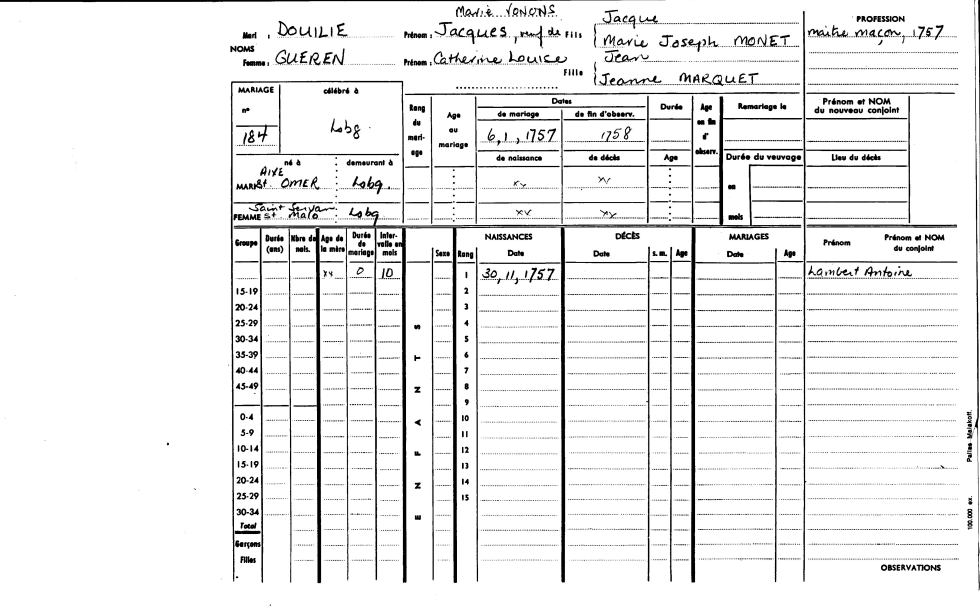 Marie VONONS
Mari : DOUILIE Prénom : Jacques, veuf de Fils Jacque
Marie Joseph MONET
NOMS
Femme : GUEREN Prénom : Catherine Louise Fille Jean
Jeanne MARQUET
PROFESSION
maitre maçon, 1757
MARIAGE célébré à
n°
184 Lobg.
Rang du mari-age Age au mariage Dates Durée Age en fin d' observ. Remariage le Prénom et NOM du nouveau conjoint
de mariage de fin d'observ.
6, 1, 1757 1758
né à demeurant à de naissance de décès Age Durée du veuvage Lieu du décès
AIXE
MARI St. OMER Lobg. xv xv en
Saint Servan
FEMME St Malo Lobg xv xv mois
Groupe Durée (ans) Nbre de nais. Age de la mère Durée de mariage Inter-valle en mois Sexe Rang NAISSANCES Date DÉCÈS Date s. m. Age MARIAGES Date Age Prénom Prénom et NOM du conjoint
xv 0 10 1 30, 11, 1757 Lambert Antoine
15-19 2
20-24 3
25-29 S 4
30-34 5
35-39 T 6
40-44 7
45-49 N 8
9
0-4 A 10
5-9 11
10-14 F 12
15-19 13
20-24 N 14
25-29 15
30-34 E
Total
Garçons
Filles
OBSERVATIONS
100.000 ex. Pailles Malakoff.